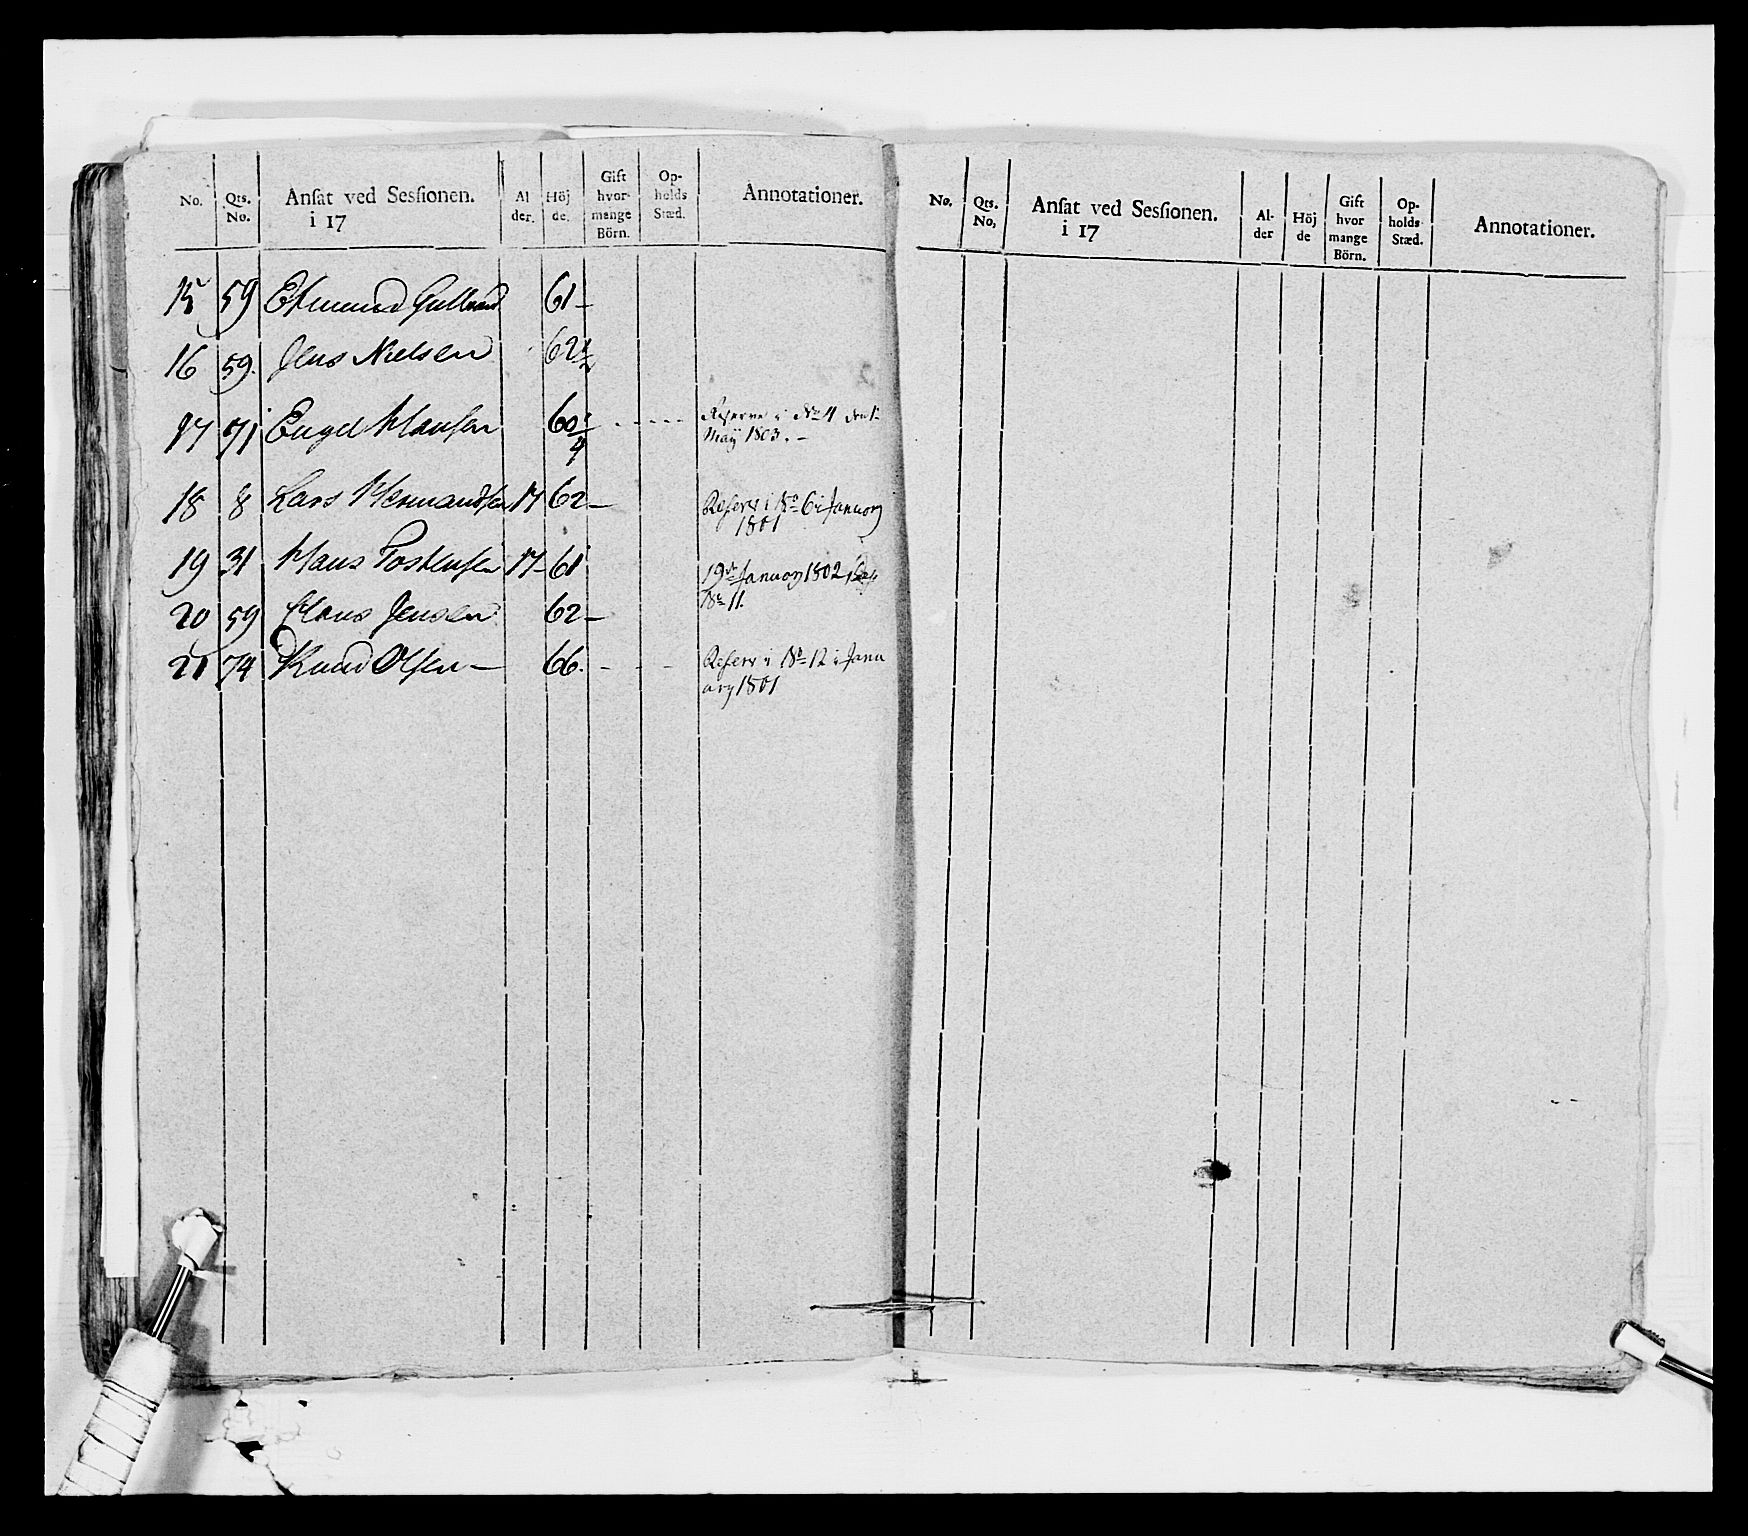 No. Qts. No. Ansat ved Sessionen. i 17 Al der. Höj de. Gift hvor mange Börn. Op- holds Stæd. Annotationer.
15 59 Edmund 61 –
16 59. Jens Nielsen 62 1/2
17 71 Engel Hansen 60 1/4 - - - - - Reserve i No 4 den 1
May 1803. –
18 8 Lars Hermandsen 17 62 – Reserv i No 6 i January
1801
19 31 Hans Tostensen 17 – 61 19de January 1802
No 11.
20 59 Hans Jensen 62 –
21 74 Knud Olsen – 66. - - - Reserv i No 12 i Janu
ary 1801
No. Qts. No, Ansat ved Sessionen. i 17 Al- der Höj de Gift hvor mange Börn. Op- holds Stæd. Annotationer.